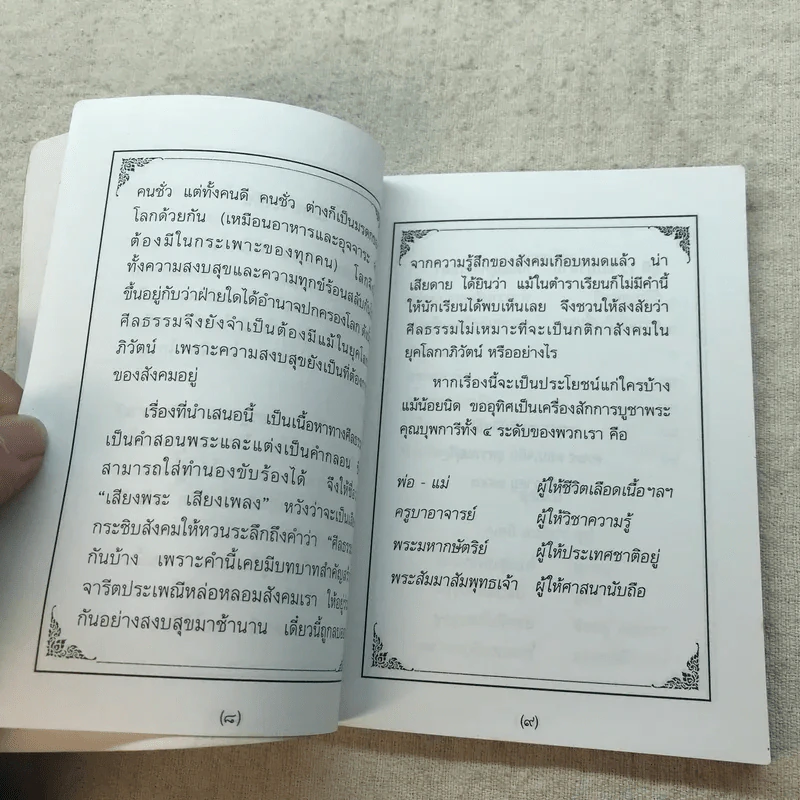 คนชั่ว แต่ทั้งคนดี คนชั่ว ต่างก็เป็นมรดกของ
โลกด้วยกัน (เหมือนอาหารและอุจจาระ
ต้องมีในกระเพาะของทุกคน)
ทั้งความสงบสุขและความทุกข์ร้อนสลับกัน
ขึ้นอยู่กับว่าฝ่ายใดได้อำนาจปกครองโลก
ศีลธรรมจึงยังจำเป็นต้องมีแม้ในยุค
ภิวัตน์ เพราะความสงบสุขยังเป็นที่
ของสังคมอยู่
เรื่องที่นำเสนอนี้ เป็นเนื้อหาทาง
เป็นคำสอนพระและแต่งเป็นคำกลอน
สามารถใส่ทำนองขับร้องได้ จึงให้
“เสียงพระ เสียงเพลง” หวังว่าจะเป็น
กระซิบสังคมให้หวนระลึกถึงคำว่า “ศีลธรรม
กันบ้าง เพราะคำนี้เคยมีบทบาทสำคัญ
จารีตประเพณีหล่อหลอมสังคมเรา
กันอย่างสงบสุขมาช้านาน เดี๋ยวนี้
(๘)
จากความรู้สึกของสังคมเกือบหมดแล้ว น่า
เสียดาย ได้ยินว่า แม้ในตำราเรียนก็ไม่มีคำนี้
ให้นักเรียนได้พบเห็นเลย จึงชวนให้สงสัยว่า
ศีลธรรมไม่เหมาะที่จะเป็นกติกาสังคมใน
ยุคโลกาภิวัตน์ หรืออย่างไร
หากเรื่องนี้จะเป็นประโยชน์แก่ใครบ้าง
แม้น้อยนิด ขออุทิศเป็นเครื่องสักการบูชาพระ
คุณบุพการีทั้ง ๔ ระดับของพวกเรา คือ
พ่อ - แม่ ผู้ให้ชีวิตเลือดเนื้อฯลฯ
ครูบาอาจารย์ ผู้ให้วิชาความรู้
พระมหากษัตริย์ ผู้ให้ประเทศชาติอยู่
พระสัมมาสัมพุทธเจ้า ผู้ให้ศาสนานับถือ
(๙)